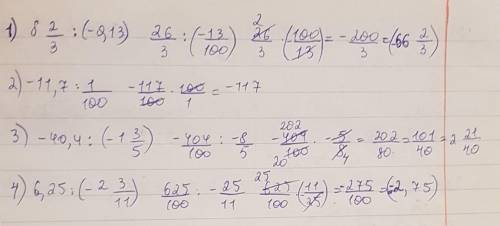 1) 8 2/3 : (-0,13) 26/3 : (-13/100) 2 26/3 · (100/13) = -200/3 = (-66 2/3)
2) -11,7 : 1/100 -117/100 · 100/1 = -117
3) -40,4 : (-1 3/5) -404/100 : -8/5 202 -404/100 20 · -5/8 4 = 202/80 = 101/40 = 2 21/40
4) 6,25 : (-2 3/11) 625/100 : -25/11 25 625/100 · (-11/25) = -275/100 = (-2,75)